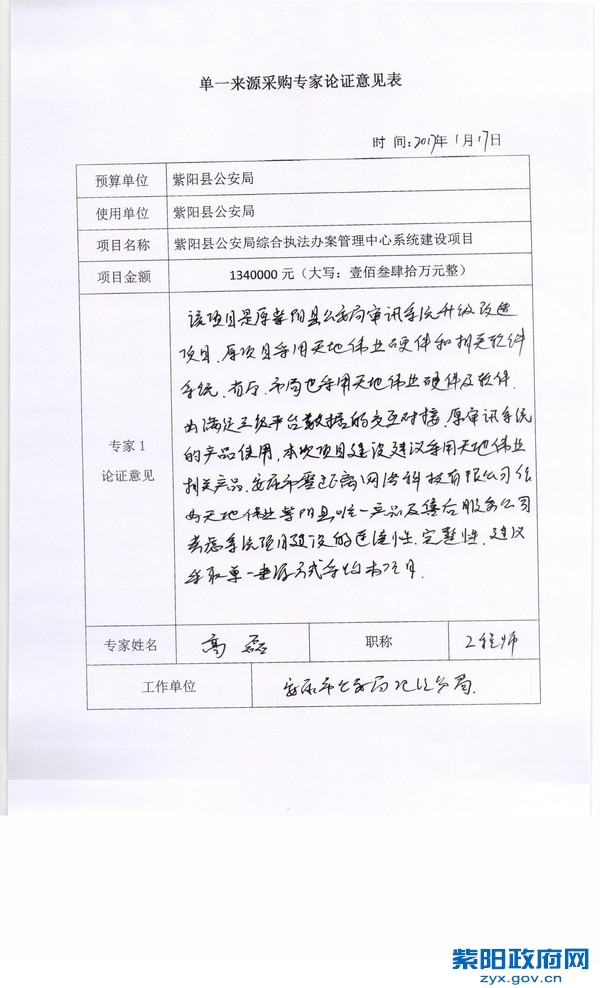 单一来源采购专家论证意见表
时 间:2017年1月17日
预算单位 紫阳县公安局
使用单位 紫阳县公安局
项目名称 紫阳县公安局综合执法办案管理中心系统建设项目
项目金额 1340000 元（大写：壹佰叁肆拾万元整）
专家 1
论证意见
该项目是原紫阳县公安局审讯系统升级改造
项目，原项目采用天地伟业硬件和相关软件
系统，省厅、市局也采用天地伟业硬件及软件，
为满足三级平台数据的交互对接，原审讯系统
的产品使用，本次项目建设建议采用天地伟业
相关产品，安康市零距离网络科技有限公司作
为天地伟业紫阳县唯一产品及售后服务公司
考虑系统项目建设的连续性、完整性，建议
采取单一来源方式采购本项目.
专家姓名 高磊 职称 工程师
工作单位 安康市公安局
紫阳政府网
zyx.gov.cn